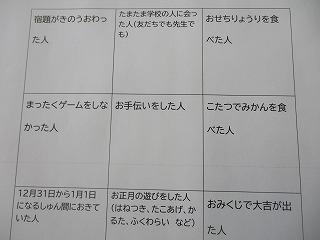 宿題がきのうおわっ
た人
たまたま学校の人に会っ
た人(友だちでも先生で
も)
おせちりょうりを食
べた人
まったくゲームをしな
かった人
お手伝いをした人
こたつでみかんを食
べた人
12月31日から1月1日
になるしゅん間におきて
いた人
お正月の遊びをした人
(はねつき、たこあげ、か
るた、ふくわらい など)
おみくじで大吉が出
た人